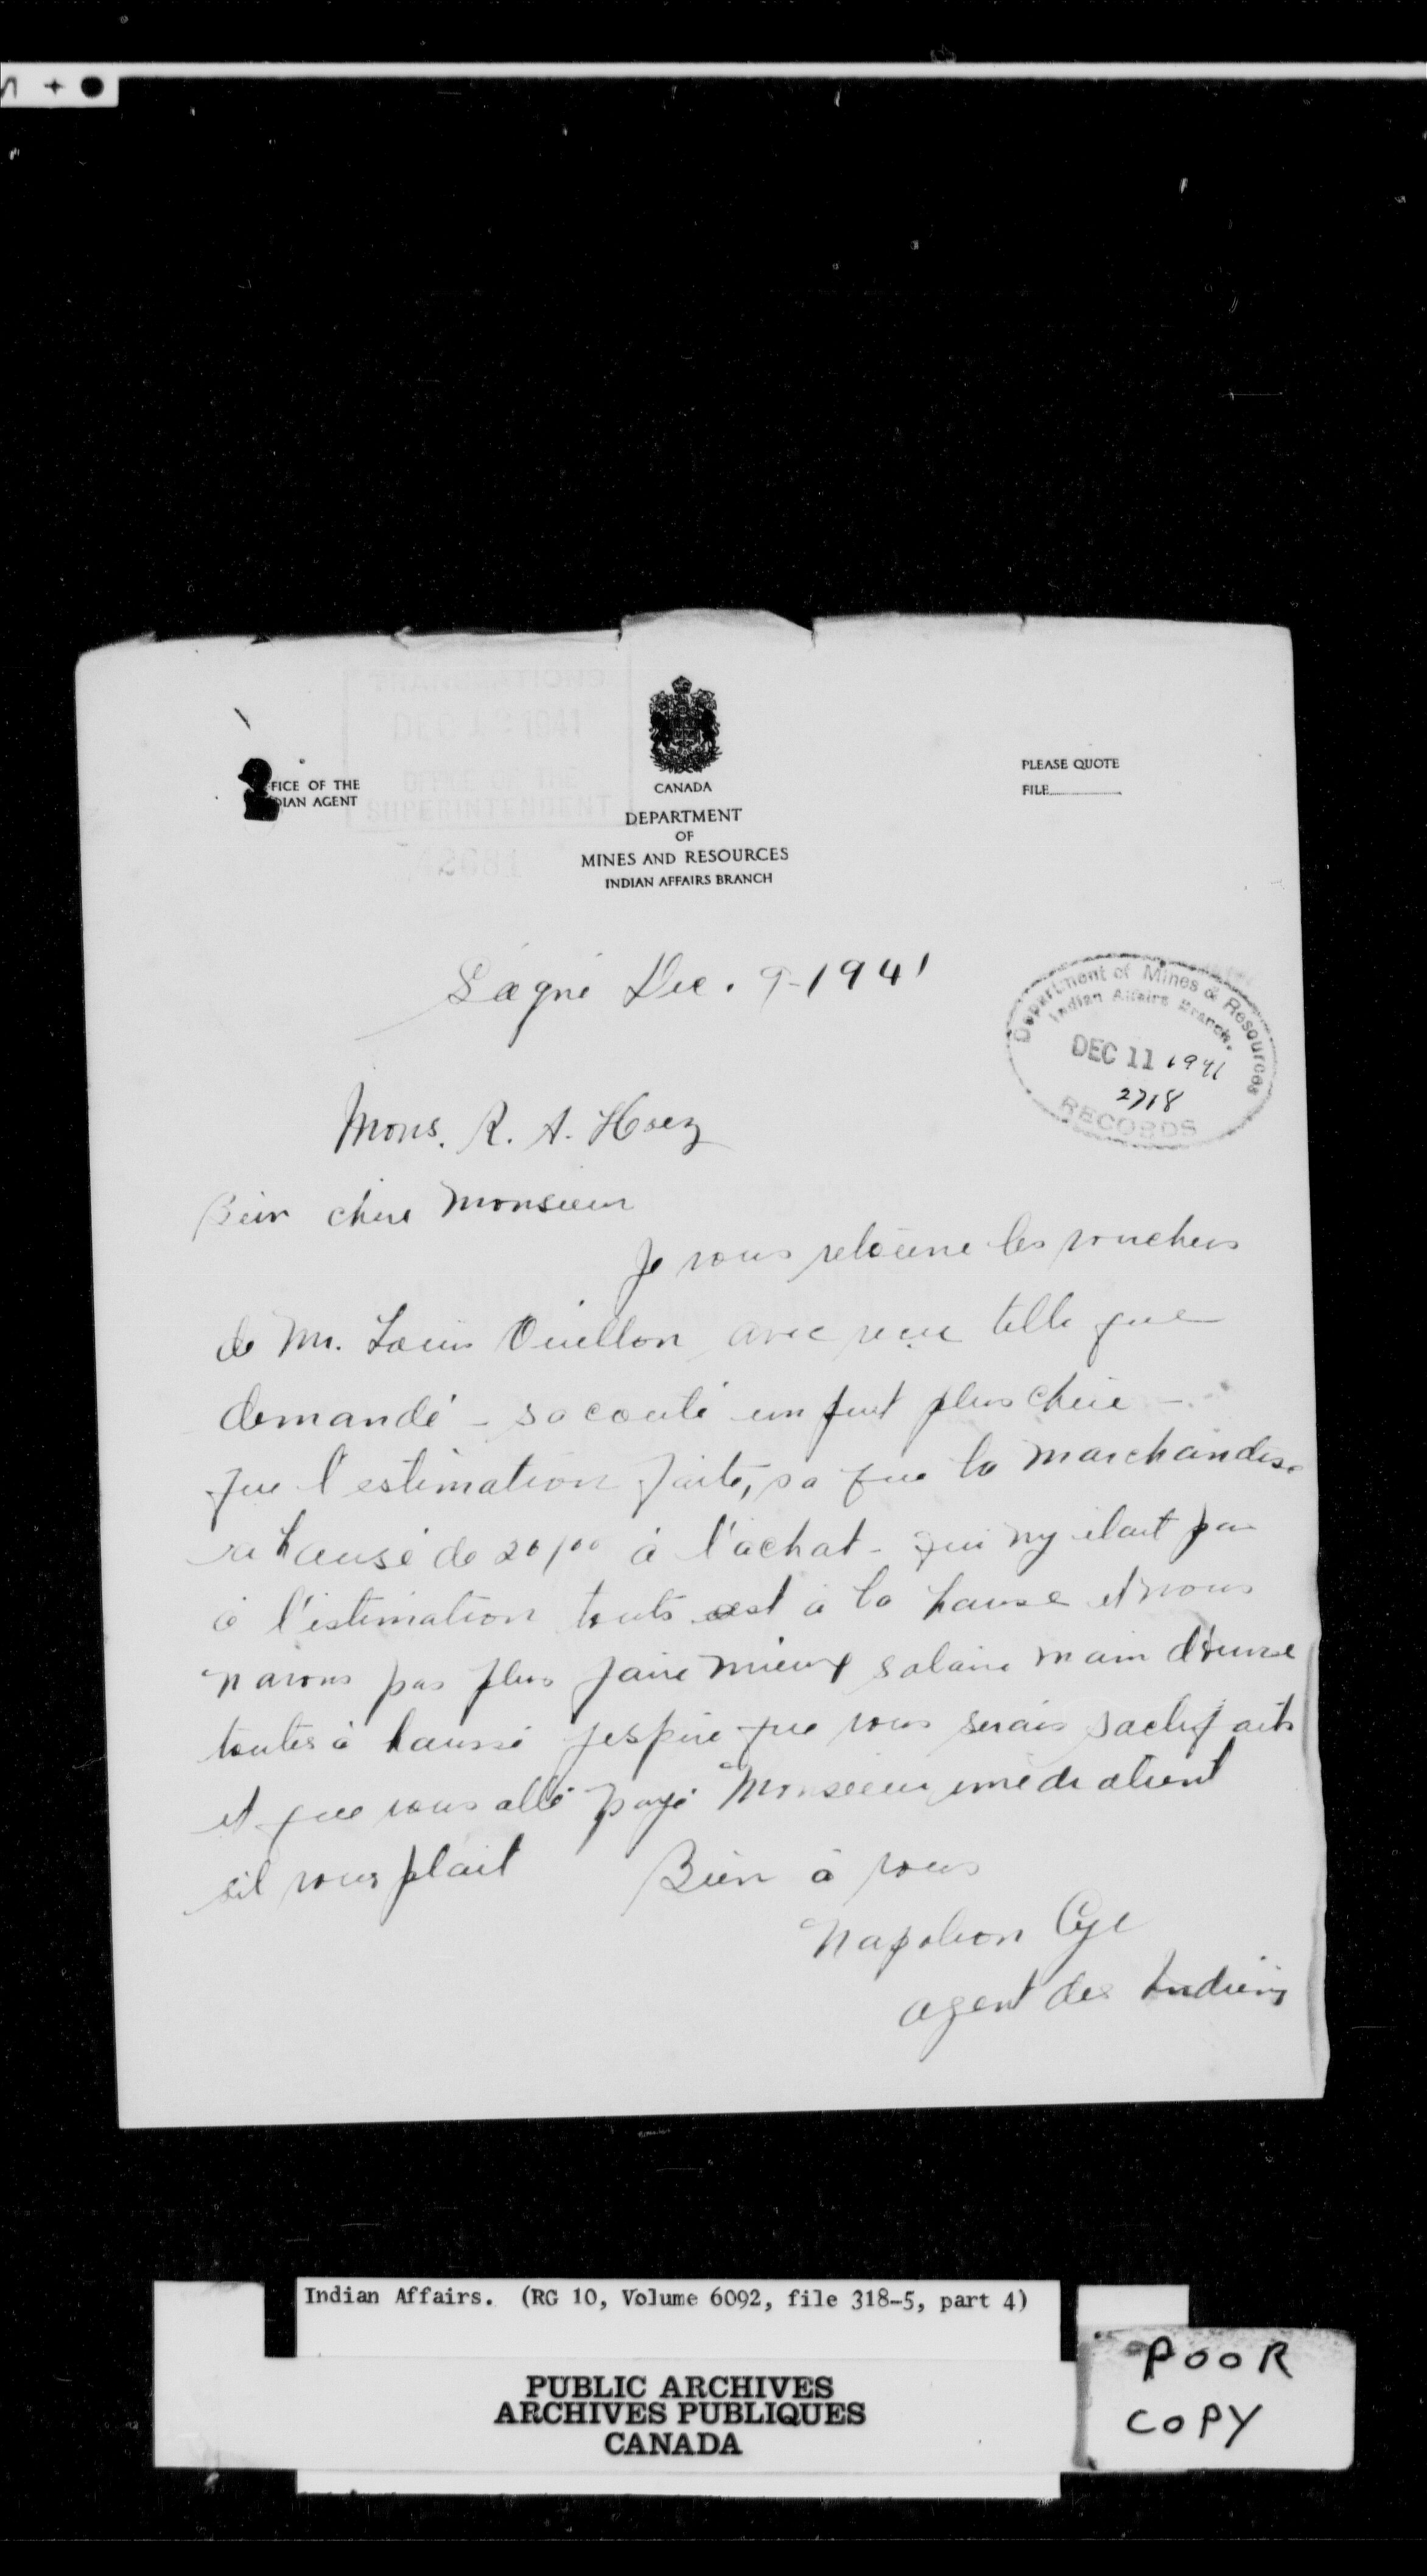 TRANSLATIONS
DEC 1 2 1941
OFFICE OF THE
SUPERINTENDENT
FICE OF THE
DIAN AGENT
CANADA
DEPARTMENT
OF
MINES AND RESOURCES
INDIAN AFFAIRS BRANCH
PLEASE QUOTE
FILE
Dec. 9-1941
Department of Mines & Resources
Indian Affairs Branch.
DEC 11 1941
2718
RECORDS
Mons. R. A. Hoey
Bien chere Monsieur
Je vous retourne les vouchers
de Mr. Louis Ouellon avec recu telle que
demandé - sa couté un peut plus chère -
que l'estimation faite, sa que la marchandise
a hausé de 20 à l'achat - qui ny etait pas
à l'estimation touts est à la hausse et nous
navons pas plus faire mieux salaire main d'euvre
toutes à haussé jespère que vous serais sactisfaits
et que vous allé payé Monsieur
sil vous plait Bien à vous
Napoleon Cyr
agent des Indiens
Indian Affairs. (RG 10, Volume 6092, file 318-5, part 4)
PUBLIC ARCHIVES
ARCHIVES PUBLIQUES
CANADA
POOR
COPY